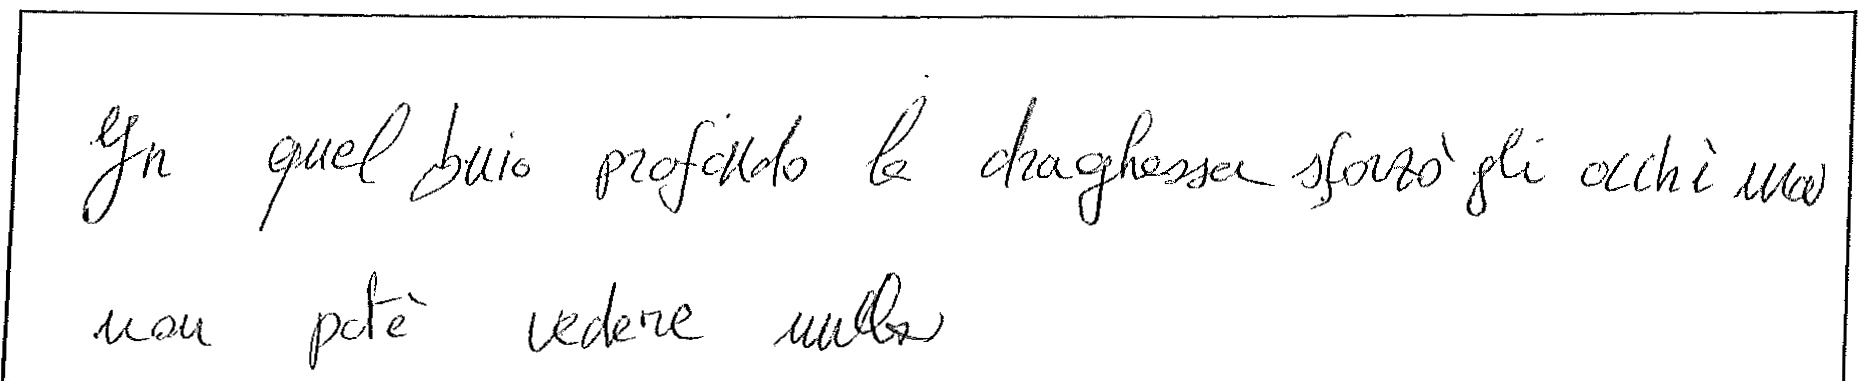 In quel buio profondo la draghessa sforzò gli occhi ma
non potè vedere nulla